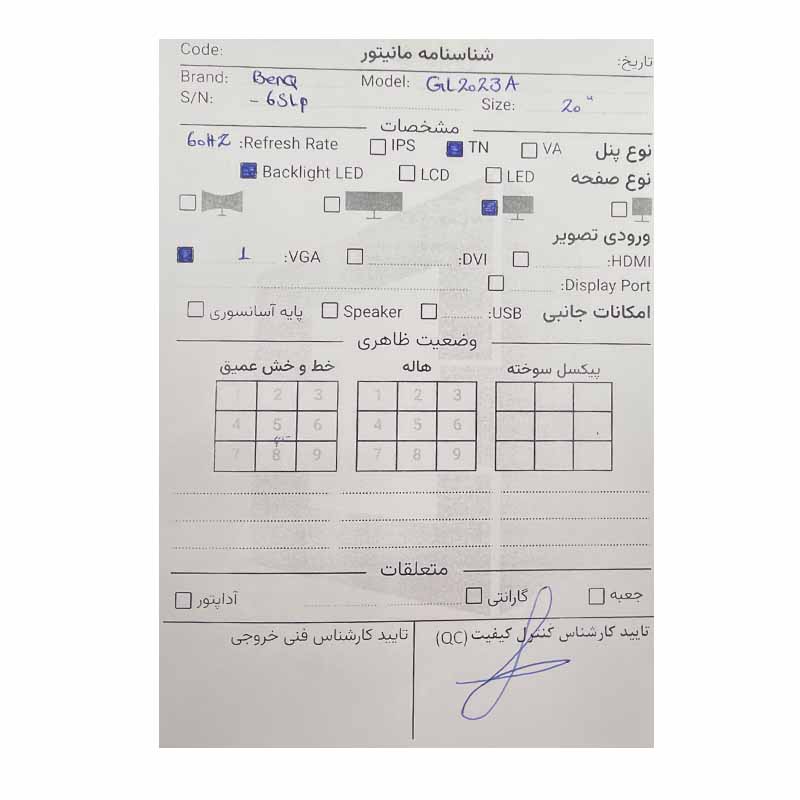 Code: شناسنامه مانیتور تاریخ:
Brand: BenQ Model: GL2023A
S/N: - 6SLp Size: 20"
مشخصات
نوع پنل VA TN IPS Refresh Rate: 60HZ
نوع صفحه LED LCD Backlight LED
ورودی تصویر
HDMI: DVI: VGA: 1
Display Port:
امکانات جانبی USB: Speaker پایه آسانسوری
وضعیت ظاهری
پیکسل سوخته هاله خط و خش عمیق
1 2 3 1 2 3
4 5 6 4 5 6
7 8 9 7 8 9
متعلقات
جعبه گارانتی آداپتور
تایید کارشناس کنترل کیفیت (QC) تایید کارشناس فنی خروجی